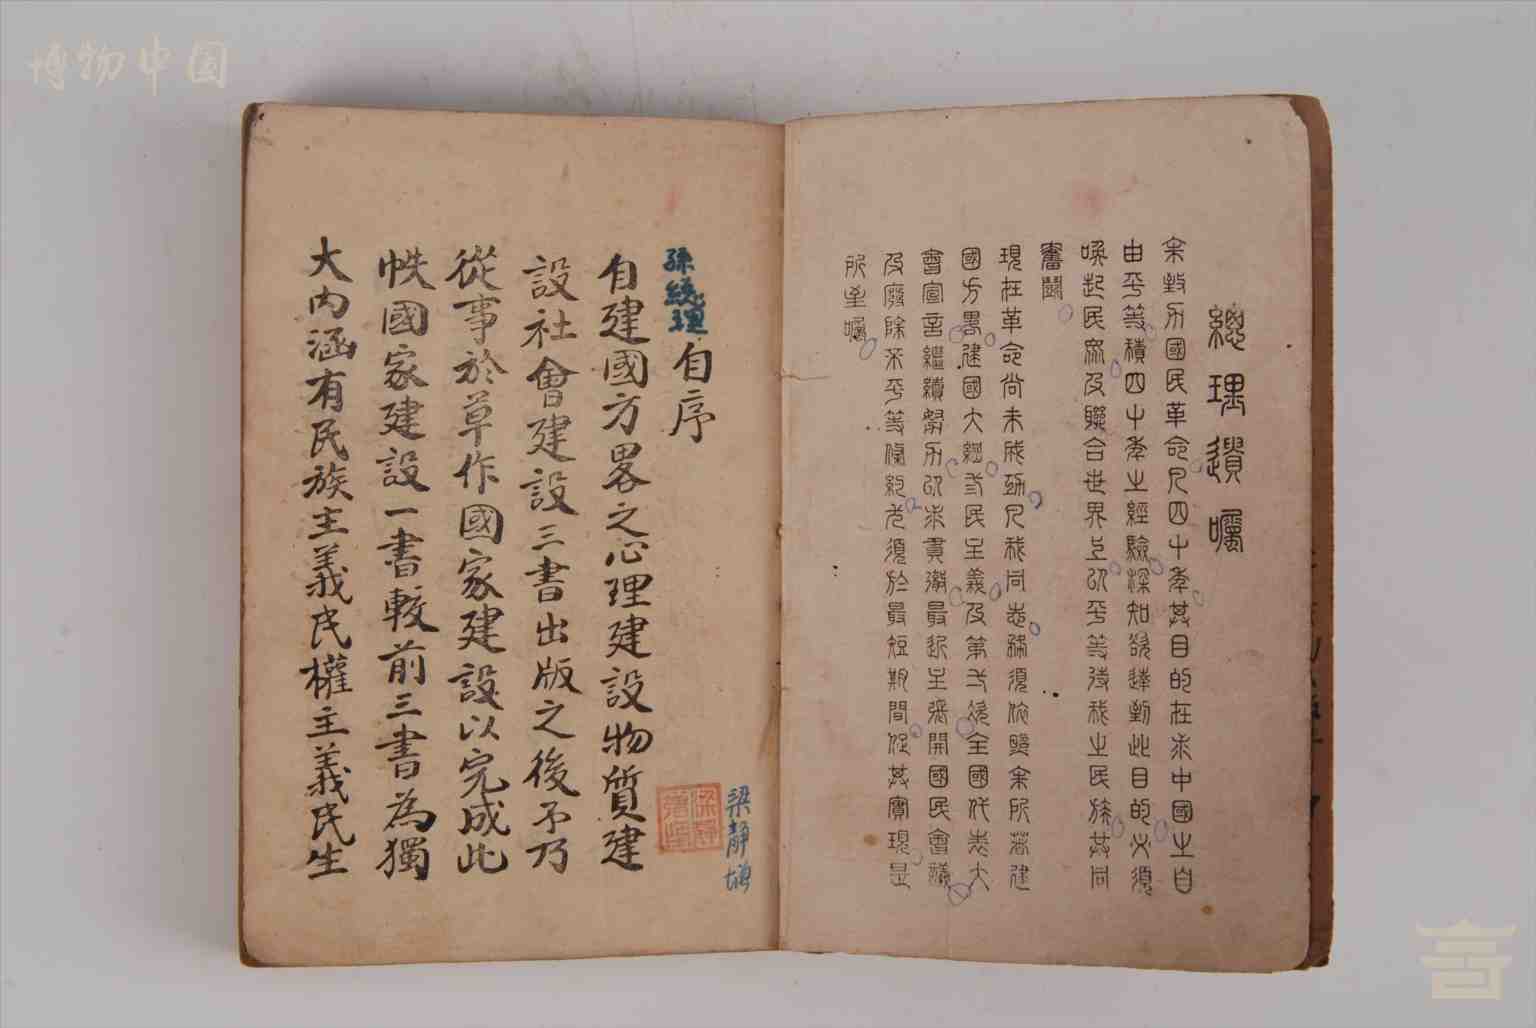 博物中国
總理遺囑
余致力國民革命凡四十年其目的在求中國之自
由平等積四十年之經驗深知欲達到此目的必須
喚起民眾及聯合世界上以平等待我之民族共同
奮鬭
現在革命尚未成功凡我同志務須依照余所著建
國方畧建國大綱弎民主義及第弌次全國代表大
會宣言繼續努力以求貫徹最近主張開國民會議
及廢除不平等條約尤須於最短期間促其實現是
所至囑
梁靜
孫總理自序
自建國方畧之心理建設物質建
設社會建設三書出版之後予乃
從事於草作國家建設以完成此
帙國家建設一書較前三書為獨
大內涵有民族主義民權主義民生